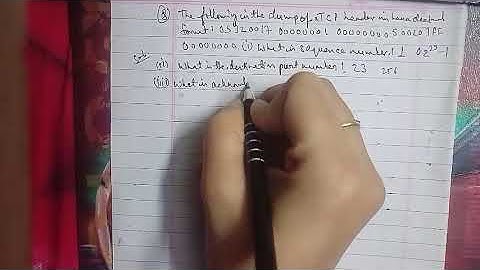 Q The following is the dump of a TCP header in hexadecimal
format: 05320017 00000001 00000000 500207FF
00000000 (i) What is sequence number? 1 0-2³²-1
Sol: (ii) What is the destination port number? 23 256
(iii) What is acknowl